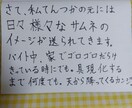 さて、私てんかつの元には
日々 様々なサムネの
イメージが送られてきます。
バイト中、家でゴロゴロからけ
きている時にでも、具現化する
まで何度でも。天が降ってくるカンジ